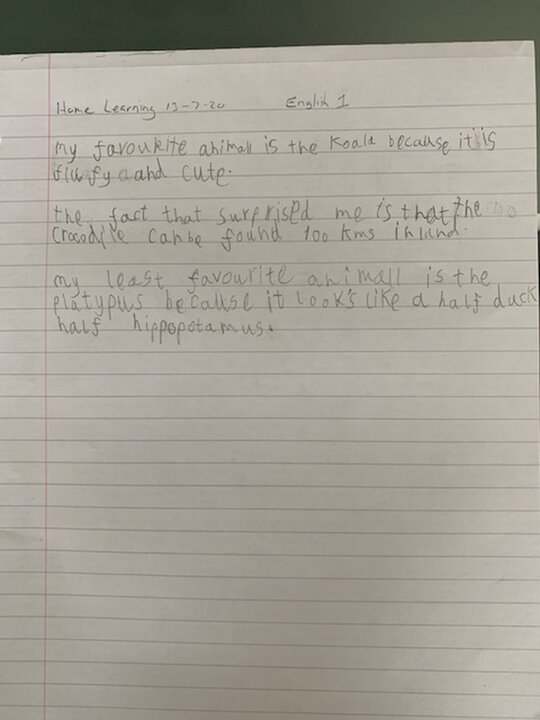 Home Learning 13-7-20 English 1
my favourite animall is the Koala because it is
fluffy aand cute.
the fact that surprised me is that the
crocodile can be found 100 kms inland.
my least favourite animall is the
platypus because it look's like a half duck
half hippopotamus.